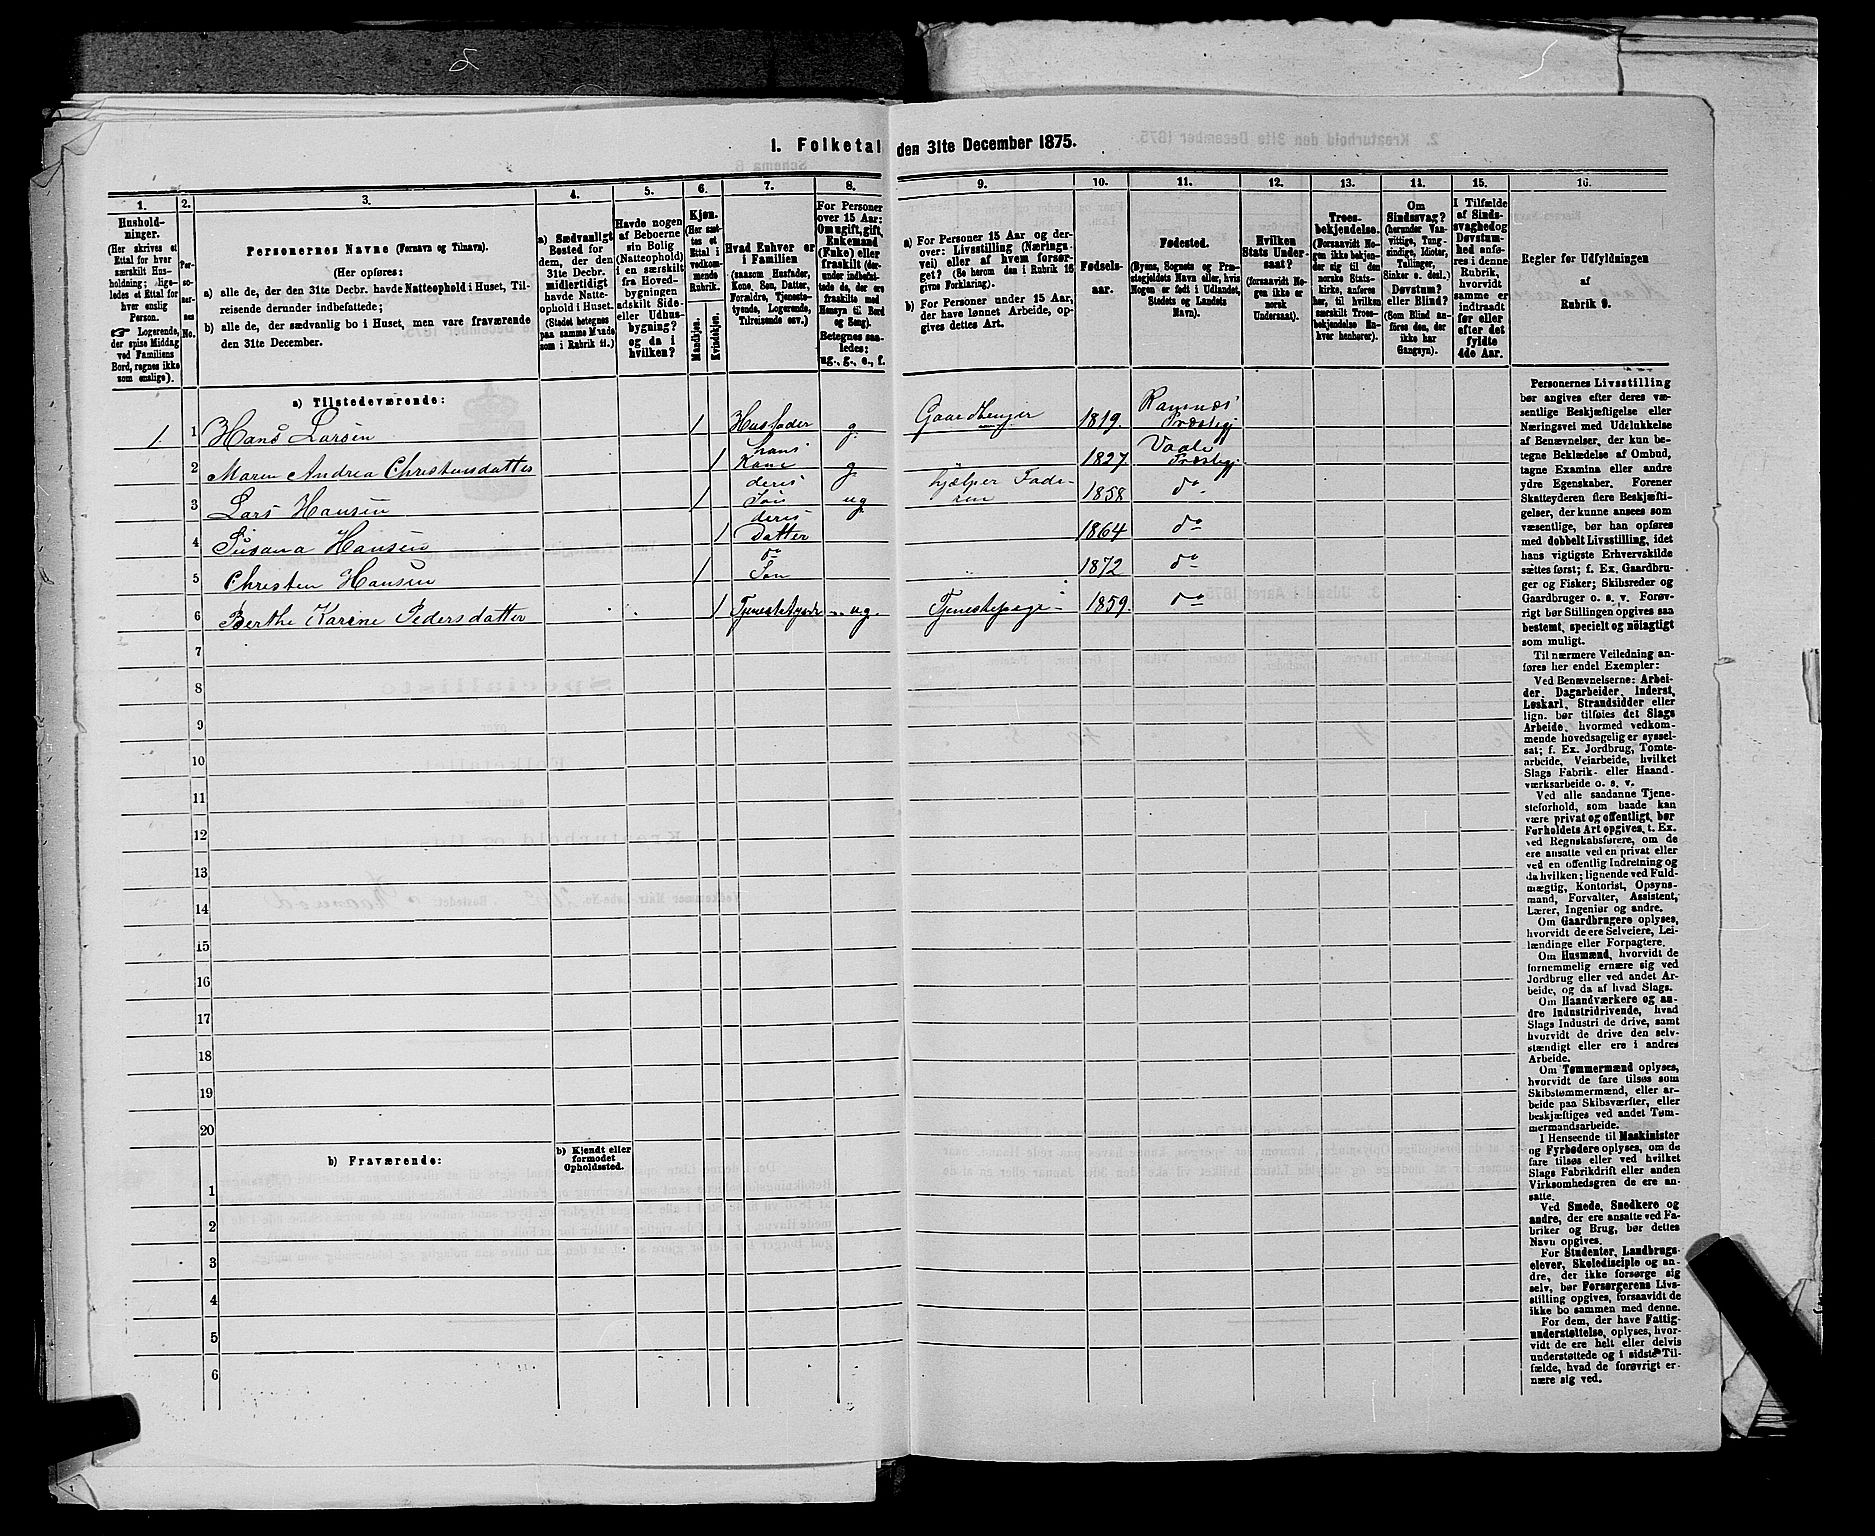 1. Folketal den 31te December 1875.
1. 2. 3. 4. 5. 6. 7. 8. 9. 10. 11. 12. 13. 14. 15. 16.
Hushold-
ninger.
(Her skrives et
Ettal for hver
særskilt Hus-
holdning; lige-
ledes et Ettal for
hver enslig
Person.
☞ Logerende,
der spise Middag
ved Familiens
Bord, regnes ikke
som enslige).
Per-
so-
ner-
nes
No.
Personernes Navne (Fornavn og Tilnavn).
(Her opføres:
a) alle de, der den 31te Decbr. havde Natteophold i Huset, Til-
reisende derunder indbefattede;
b) alle de, der sædvanlig bo i Huset, men vare fraværende
den 31te December.
a) Sædvanligt
Bosted for
dem, der den
31te Decbr.
midlertidigt
havde Natte-
ophold i Huset.
(Stedet betegnes
paa samme Maade
som i Rubrik 11.)
Havde nogen
af Beboerne
sin Bolig
(Natteophold)
i en særskilt
fra Hoved-
bygningen
adskilt Side-
eller Udhus-
bygning?
og da i
hvilken?
Kjøn.
(Her sæt-
tes et
Ettal i
vedkom-
mende
Rubrik.
Mandkjøn.
Kvindekjøn.
Hvad Enhver er
i Familien
(saasom Husfader,
Kone, Søn, Datter,
Forældre, Tjeneste-
tyende, Logerende,
Tilreisende osv.)
For Personer
over 15 Aar:
Om ugift, gift,
Enkemand
(Enke) eller
fraskilt (der-
under indbefat-
tede de, der ere
fraskilte med
Hensyn til Bord
og Seng).
Betegnes saa-
ledes:
ug., g., e., f.
a) For Personer 15 Aar og der-
over: Livsstilling (Nærings-
vei) eller af hvem forsør-
get? (Se herom den i Rubrik 16
givne Forklaring).
b) For Personer under 15 Aar,
der have lønnet Arbeide, op-
gives dettes Art.
Fødsels-
aar.
Fødested.
(Byens, Sognets og Præ-
stegjeldets Navn eller, hvis
Nogen er født i Udlandet,
Stedets og Landets
Navn).
Hvilken
Stats Under-
saat?
(forsaavidt No-
gen ikke er
norsk
Undersaat).
Troes-
bekjendelse.
(Forsaavidt No-
gen ikke bekjen-
der sig til den
norske Stats-
kirke, anføres
her, til hvilken
særskilt Troes-
bekjendelse En-
hver henhører).
Om
Sindssvag?
(herunder Van-
vittige, Tung-
sindige, Idioter,
Tullinger,
Sinker o. desl.)
Døvstum?
eller Blind?
(Som Blind an-
føres den, der
ikke har
Gangsyn).
I Tilfælde
af Sinds-
svaghed og
Døvstum-
hed anfø-
res i denne
Rubrik,
hvorvidt
samme er
indtraadt
før eller
efter det
fyldte
4de Aar.
Regler for Udfyldningen
af
Rubrik 9.
a) Tilstedeværende:
1. 1 Hans Larsen 1 Husfader g. Gaardbruger 1819. Ramnæs Præstegj
2 Maren Andrea Christensdatter 1 hans Kone g. 1827. Vaale Præstegj
3 Lars Hansen 1 deres Søn ug. hjælper Fade-ren 1858 do
4 Susana Hansen 1 deres Datter 1864 do
5 Christen Hansen 1 do Søn 1872 do
6 Berthe Karine Pedersdatter 1 Tjenestetyende ug. Tjenestepige 1859. do
7
8
9
10
11
12
13
14
15
16
17
18
19
20
b) Fraværende:
b) Kjendt eller
formodet
Opholdssted.
1
2
3
4
5
6
Personernes Livsstilling
bør angives efter deres væ-
sentlige Beskjæftigelse eller
Næringsvei med Udelukkelse
af Benævnelser, der kun be-
tegne Beklædelse af Ombud,
tagne Examina eller andre
ydre Egenskaber. Forener
Skatteyderen flere Beskjæfti-
gelser, der kunne ansees som
væsentlige, bør han opføres
med dobbelt Livsstilling, idet
hans vigtigste Erhvervskilde
sættes først; f. Ex. Gaardbru-
ger og Fisker; Skibsreder og
Gaardbruger o. s. v. Forøv-
rigt bør Stillingen opgives saa
bestemt, specielt og nöiagtigt
som muligt.
Til nærmere Veiledning an-
føres her endel Exempler:
Ved Benævnelserne: Arbei-
der, Dagarbeider, Inderst,
Løskarl, Strandsidder eller
lign. bør tilføies det Slags
Arbeide, hvormed vedkom-
mende hovedsagelig er syssel-
sat; f. Ex. Jordbrug, Tomte-
arbeide, Veiarbeide, hvilket
Slags Fabrik- eller Haand-
værksarbeide o. s. v.
Ved alle saadanne Tjene-
steforhold, som baade kan
være privat og offentligt, bør
Forholdets Art opgives, t. Ex.
ved Regnskabsførere, om de
ere ansatte ved en privat eller
ved en offentlig Indretning og
da hvilken; lignende ved Fuld-
mægtig, Kontorist, Opsyns-
mand, Forvalter, Assistent,
Lærer, Ingeniør og andre.
Om Gaardbrugere oplyses,
hvorvidt de ere Selveiere, Lei-
lændinge eller Forpagtere.
Om Husmænd, hvorvidt de
fornemmelig ernære sig ved
Jordbrug eller ved andet Ar-
beide, og da af hvad Slags.
Om Haandværkere og an-
dre Industridrivende, hvad
Slags Industri de drive, samt
hvorvidt de drive den selv-
stændigt eller ere i andres
Arbeide.
Om Tømmermænd oplyses,
hvorvidt de fare tilsøs som
Skibstømmermænd, eller ar-
beide paa Skibsværfter, eller
beskjæftiges ved andet Tøm-
mermandsarbeide.
I Henseende til Maskinister
og Fyrbødere oplyses, om de
fare tilsøs eller ved hvilket
Slags Fabrikdrift eller anden
Virksomhedsgren de ere an-
satte.
Ved Smede, Snedkere og
andre, der ere ansatte ved Fa-
briker og Brug, bør dettes
Navn opgives.
For Studenter, Landbrugs-
elever, Skoledisciple og an-
dre, der ikke forsørge sig
selv, bør Forsørgerens Livs-
stilling opgives, forsaavidt de
ikke bo sammen med denne.
For dem, der have Fattig-
understøttelse, oplyses, hvor-
vidt de ere helt eller delvis
understøttede og i sidste Til-
fælde, hvad de forøvrigt er-
nære sig ved.